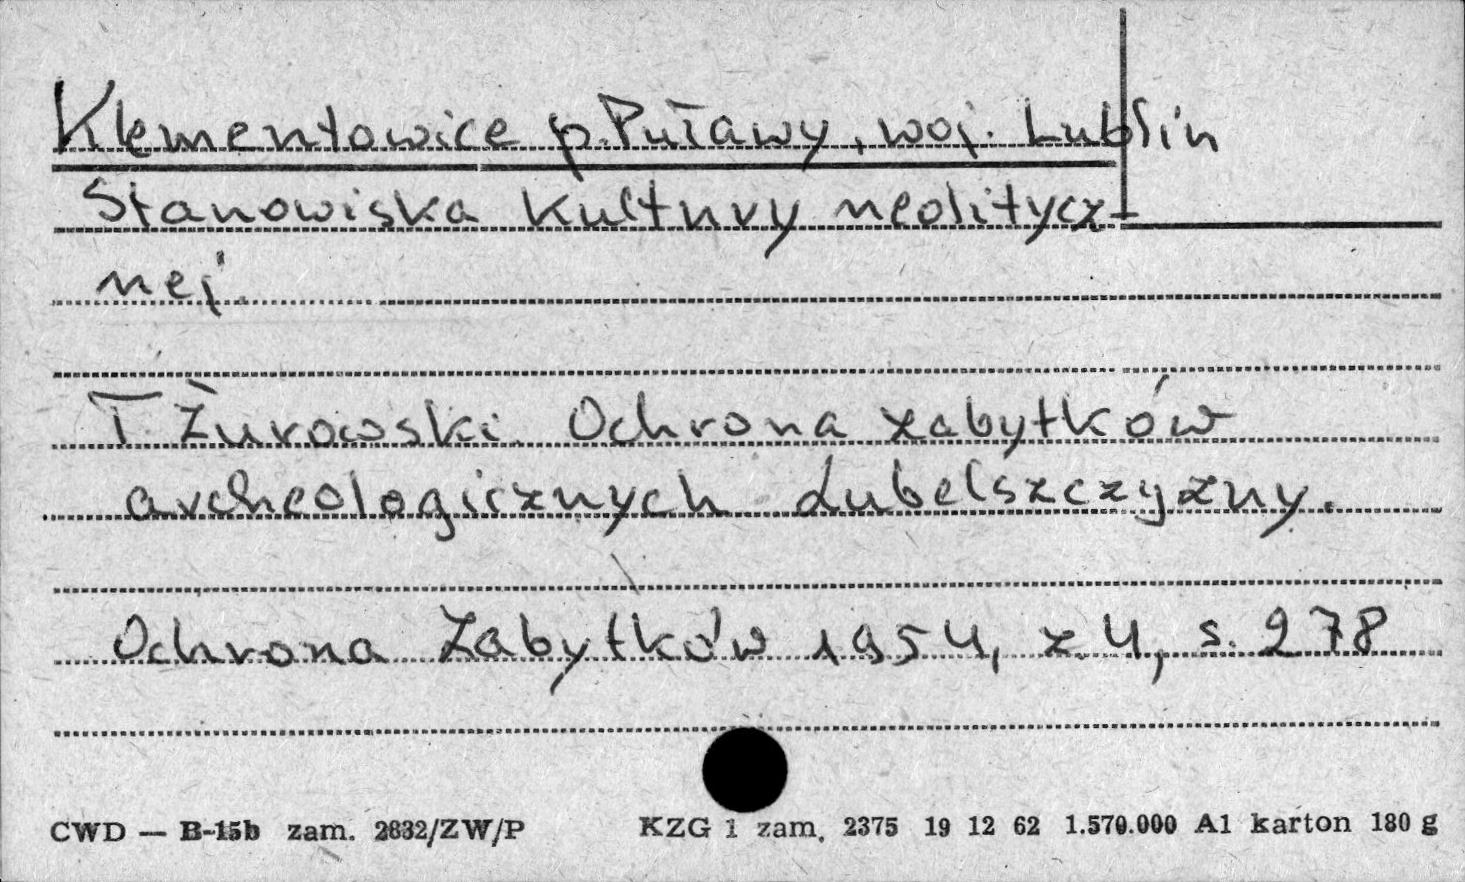 Klementowice p. Puławy, woj. Lublin
Stanowiska kultury neolitycz-
nej.
T. Żurowski. Ochrona zabytków
archeologicznych Lubelszczyzny.
Ochrona Zabytków 1954, z. 4, s. 278
CWD — B-15b zam. 2832/ZW/P KZG 1 zam. 2375 19 12 62 1.570.000 A1 karton 180 g